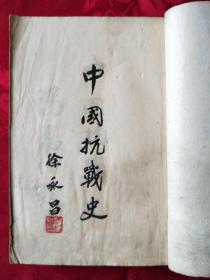 中國抗戰史
徐永昌